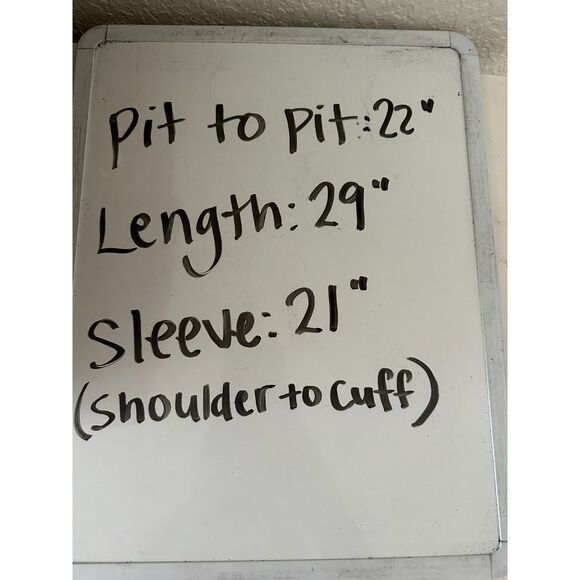 Pit to Pit: 22"
Length: 29"
Sleeve: 21"
(Shoulder to Cuff)